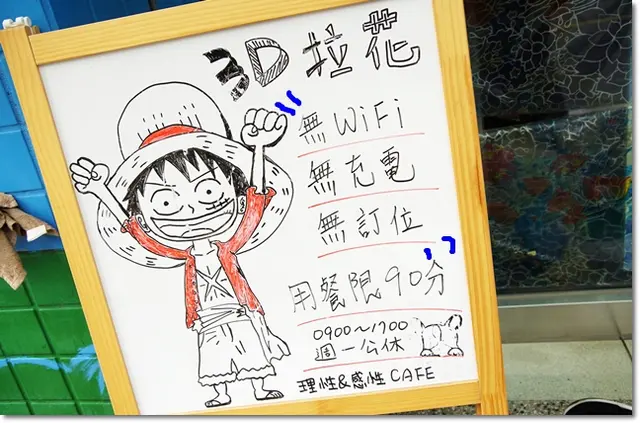 3D拉花
無WiFi
無充電
無訂位
用餐限90分
0900~1700
週一公休
理性&感性CAFE